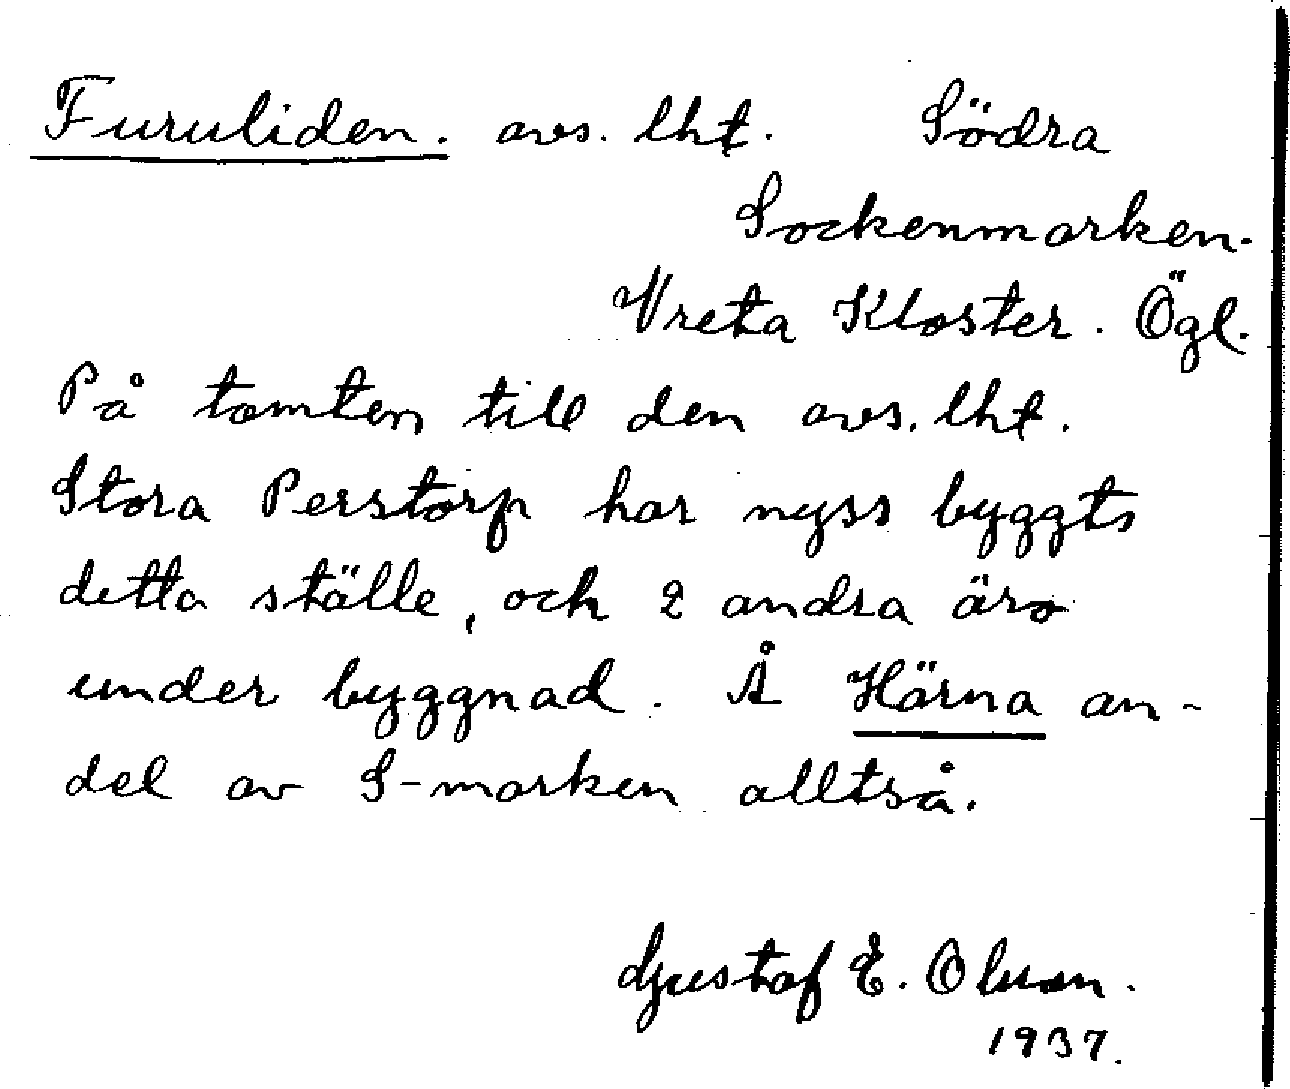 Furuliden. avs. lht. Södra
Sockenmarken.
Vreta Kloster. Ögl.
På tomten till den avs. lht.
Stora Perstorp har nyss byggts
detta ställe, och 2 andra äro
under byggnad. Å Härna an-
del av S-marken alltså.
Gustaf E. Olson.
1937.